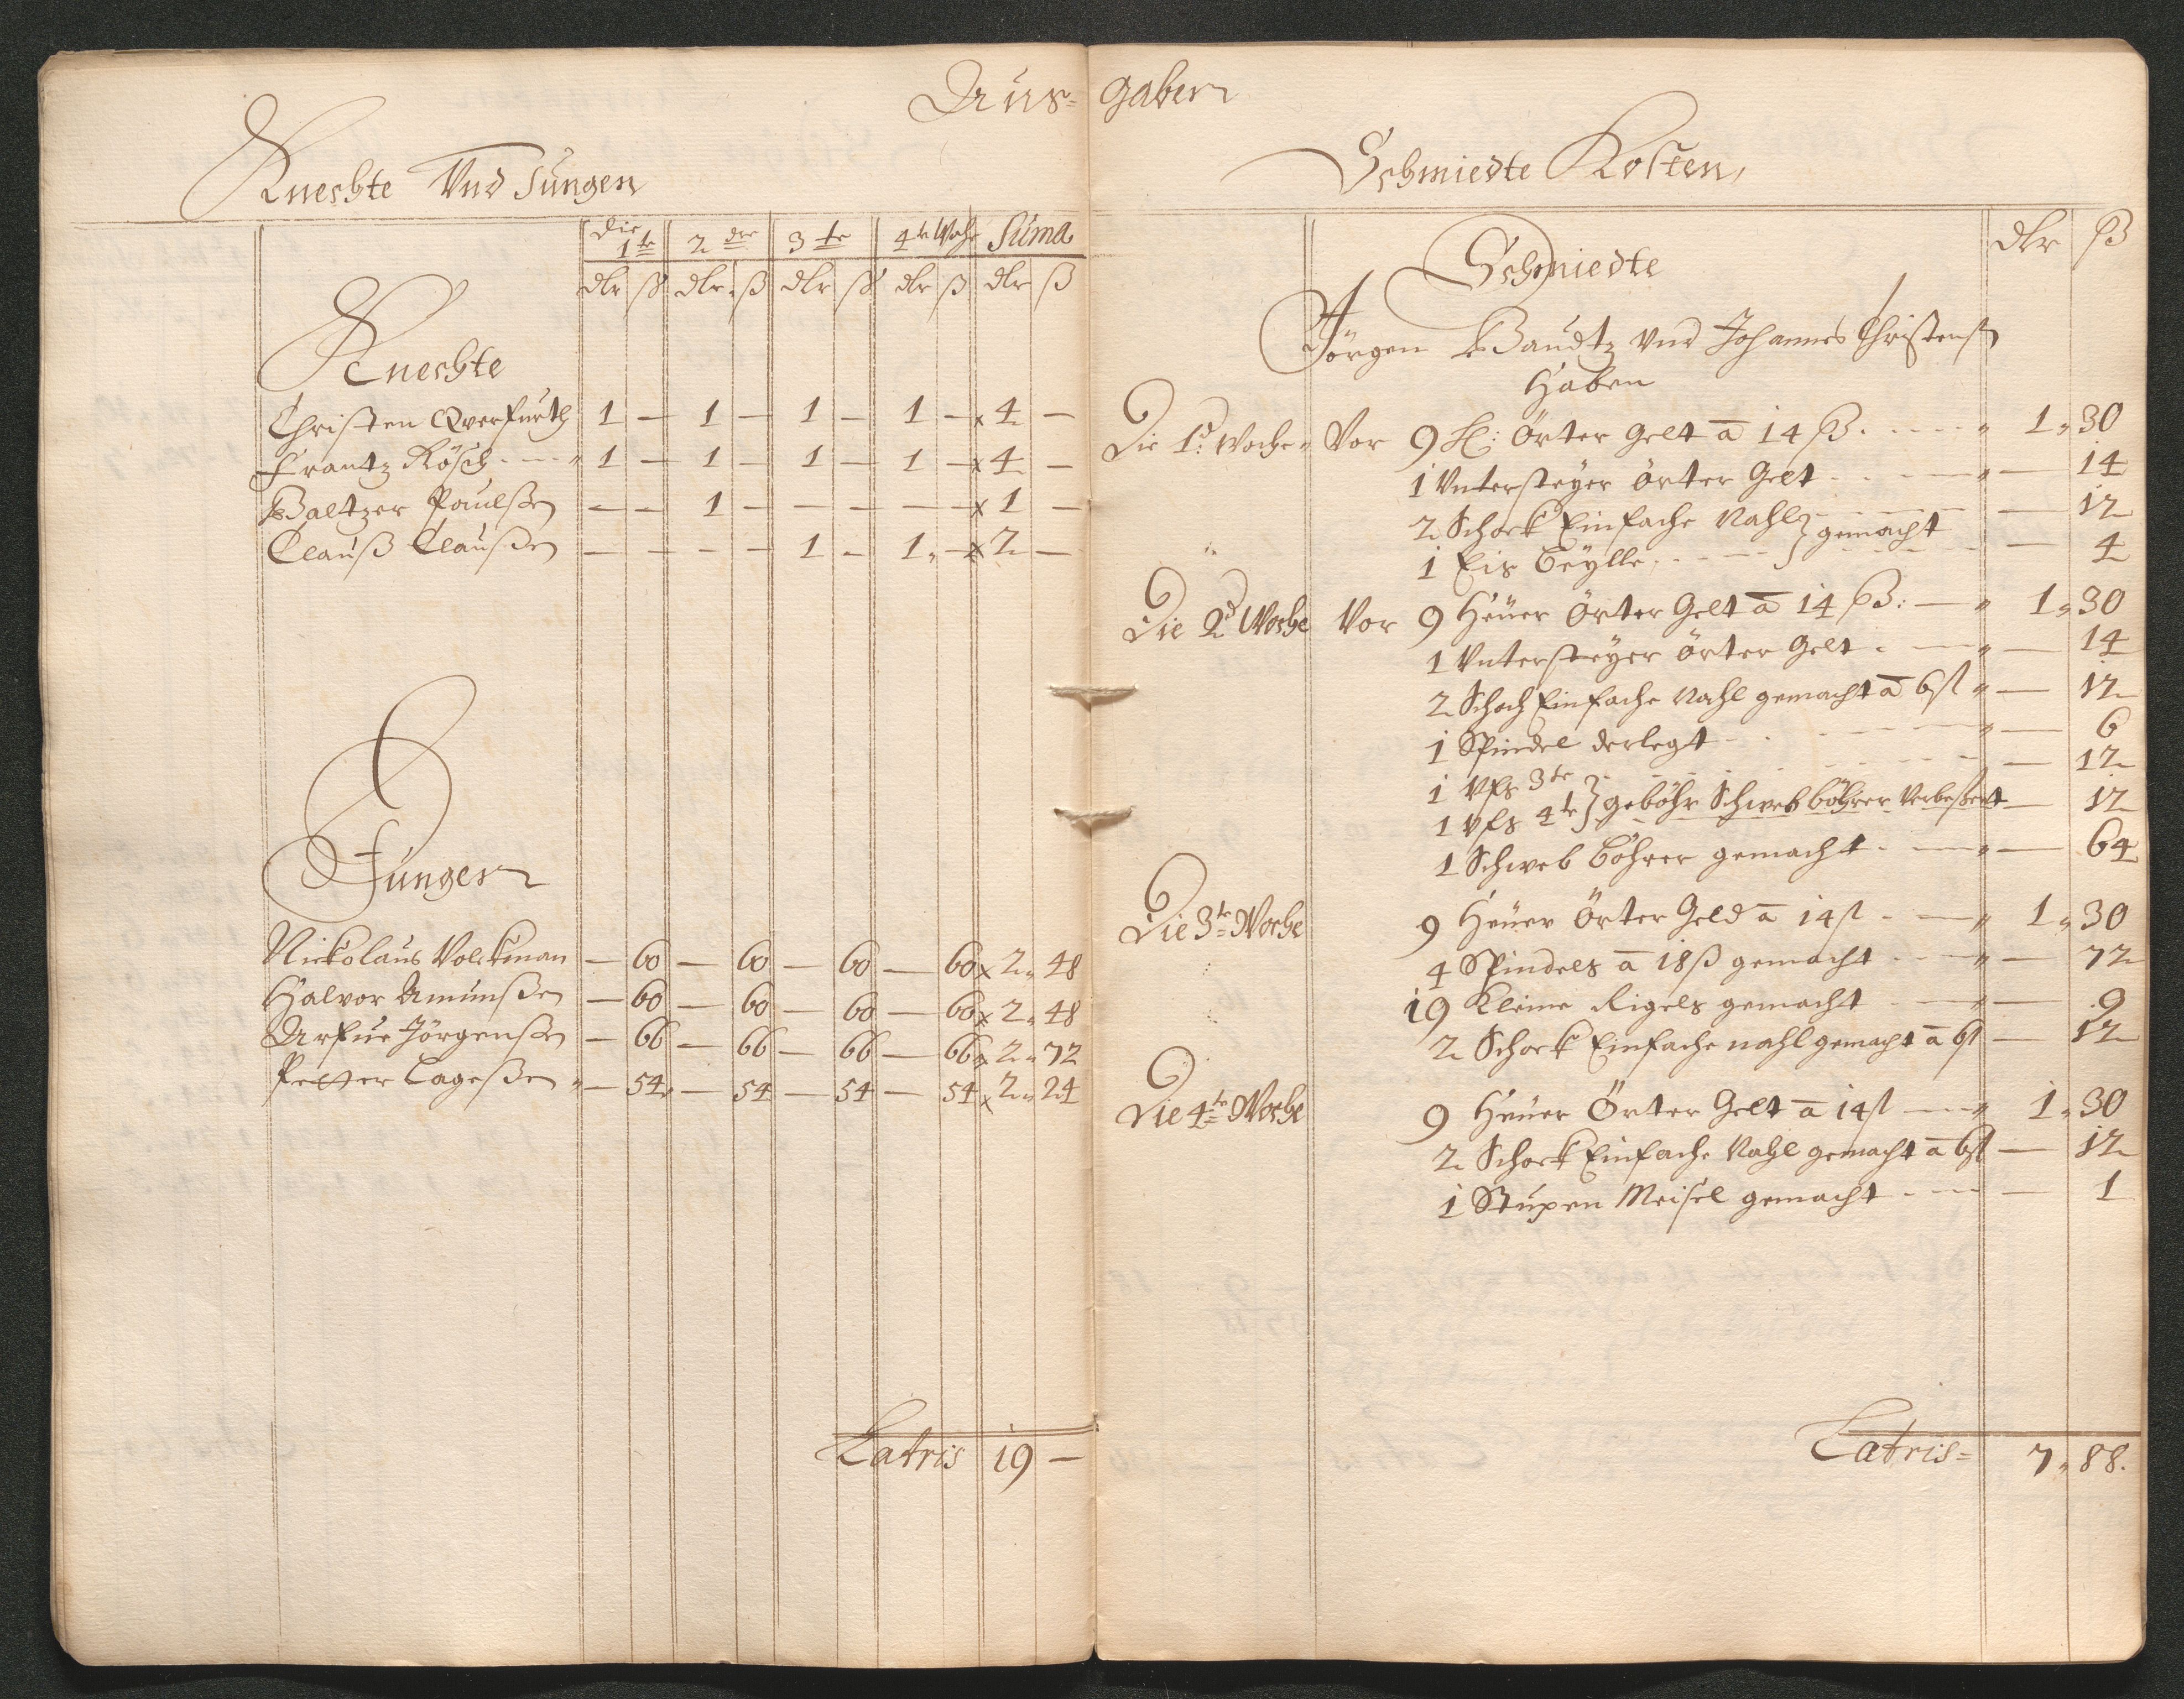 Aus= gaben
Knechte Und Jungen
Die 1te 2dre 3te 4te Woche Suma
dlr ß dlr ß dlr ß dlr ß dlr ß
Knechte
Christen Qverfurth 1 — 1 — 1 — 1 — x 4 —
Frantz Rösch 1 — 1 — 1 — 1 — x 4 —
Baltzer Paulßen — — 1 — — — — — x 1 —
Clauß Claußen — — — — 1 — 1 — x 2 —
Jungen
Nickolaus Volckman — 60 — 60 — 60 — 60 x 2 „ 48
Halvor Amunßen — 60 — 60 — 60 — 60 x 2 „ 48
Jörgenßen — 66 — 66 — 66 — 66 x 2 „ 72
Petter Lageßen — 54 — 54 — 54 — 54 x 2 „ 24
Latris 19 —
Schmiedte Kosten,
dlr ß
Schmiedte
Jörgen Baudtz Vnd Johannes Christens
Haben
Die 1e Woche Vor 9 Örter Gelt a 14 ß. 1 „ 30
1 Untersteyer örter Gelt — 14
2 Schock Einfache Nahl } gemacht — 12
1 Eis Beylle — 4
Die 2d Woche Vor 9 Heüer Örter Gelt a 14 ß: — 1 „ 30
1 Untersteyer örter Gelt — 14
2 Schoch Einfache Nahl gemacht a 6 ß — 12
1 Spindel verlegt — 6
1 Vfs 3te — 12
1 Vfs 4te } geböhr Schweb böhrer Verbeßert — 12
1 Schweb böhrer gemacht — 64
Die 3te Woche 9 Heüer Örter Geld a 14 ß — 1 „ 30
4 Spindels a 18 ß gemacht — 72
19 Kleine Rigels gemacht — 9
2 Schock Einfache nahl gemacht a 6 ß — 12
Die 4te Woche 9 Heüer Örter Gelt a 14 ß — 1 „ 30
2 Schock Einfache Nahl gemacht a 6 ß — 12
1 Stupen Meisel gemacht — 1
Latris = 7 „ 88.